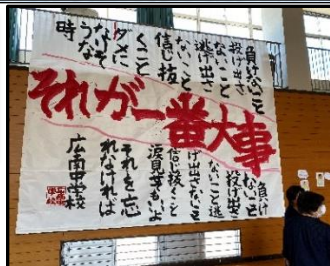 負けないこと
投げ出さ
ないこと
逃げ出さ
ないこと
信じ抜
くこと
ダメに
なって
うな
時
それが一番大事
負け
ないこと
投げ出さ
ないこと逃
げ出さないこと
信じ抜くこと
涙見せてもいいよ
それを忘
れなければ
広南中学校